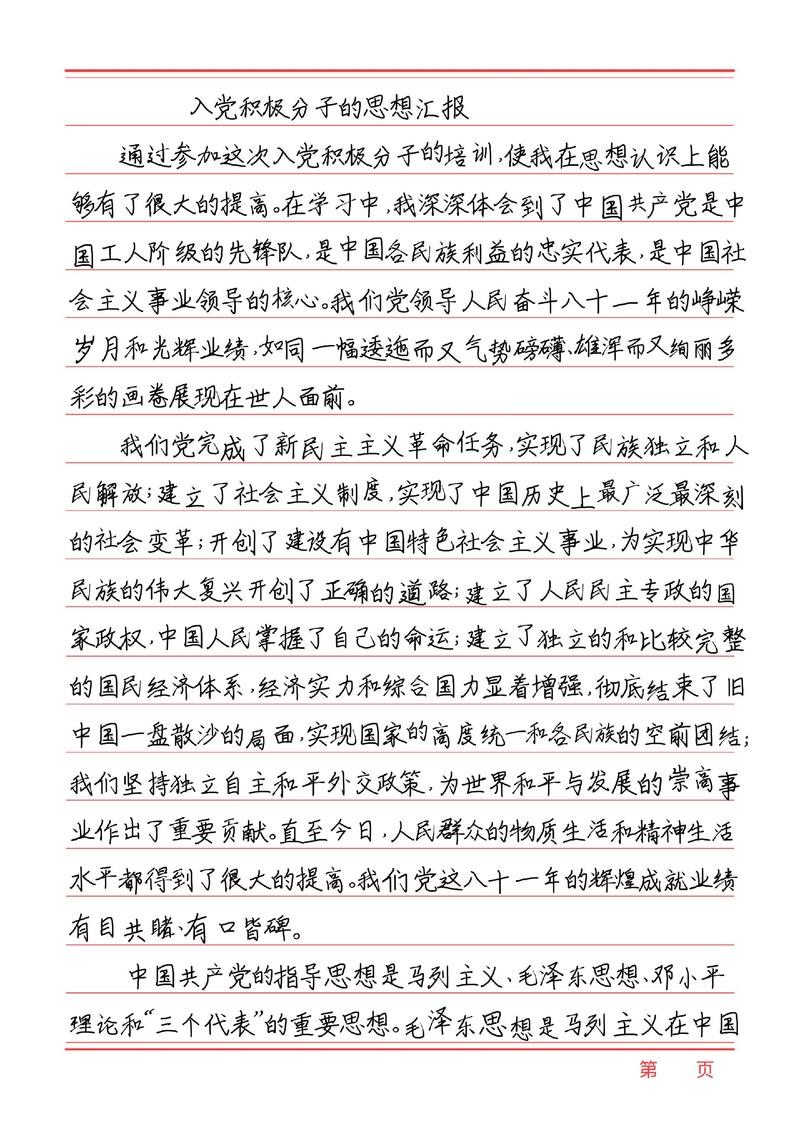 入党积极分子的思想汇报
通过参加这次入党积极分子的培训,使我在思想认识上能
够有了很大的提高。在学习中,我深深体会到了中国共产党是中
国工人阶级的先锋队,是中国各民族利益的忠实代表,是中国社
会主义事业领导的核心。我们党领导人民奋斗八十一年的峥嵘
岁月和光辉业绩,如同一幅逶迤而又气势磅礴、雄浑而又绚丽多
彩的画卷展现在世人面前。
我们党完成了新民主主义革命任务,实现了民族独立和人
民解放;建立了社会主义制度,实现了中国历史上最广泛最深刻
的社会变革;开创了建设有中国特色社会主义事业,为实现中华
民族的伟大复兴开创了正确的道路;建立了人民民主专政的国
家政权,中国人民掌握了自己的命运;建立了独立的和比较完整
的国民经济体系,经济实力和综合国力显着增强,彻底结束了旧
中国一盘散沙的局面,实现国家的高度统一和各民族的空前团结;
我们坚持独立自主和平外交政策,为世界和平与发展的崇高事
业作出了重要贡献。直至今日,人民群众的物质生活和精神生活
水平都得到了很大的提高。我们党这八十一年的辉煌成就业绩
有目共睹、有口皆碑。
中国共产党的指导思想是马列主义、毛泽东思想、邓小平
理论和“三个代表”的重要思想。毛泽东思想是马列主义在中国
第 页